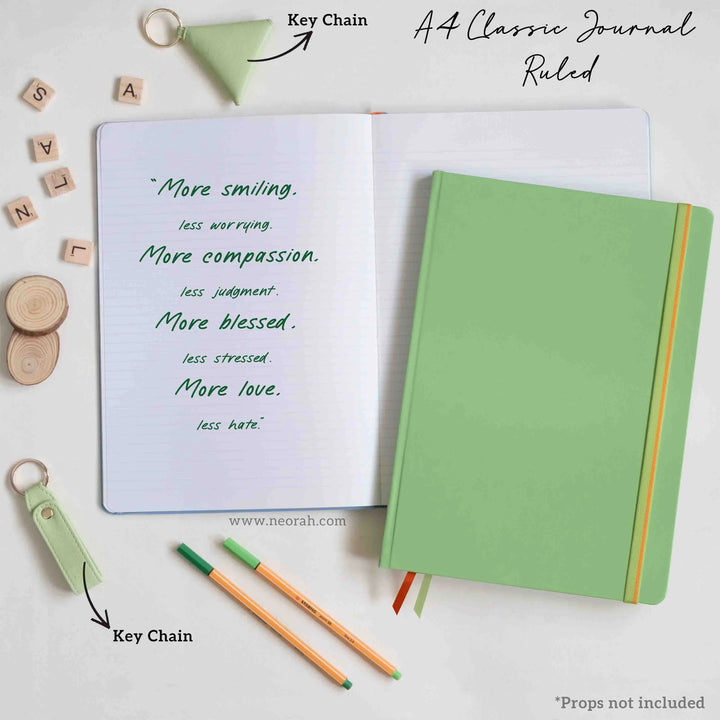 Key Chain
A4 Classic Journal
Ruled
S
A
A
L
N
L
"More smiling.
less worrying.
More compassion.
less judgment.
More blessed.
less stressed.
More love.
less hate."
www.neorah.com
Key Chain
*Props not included